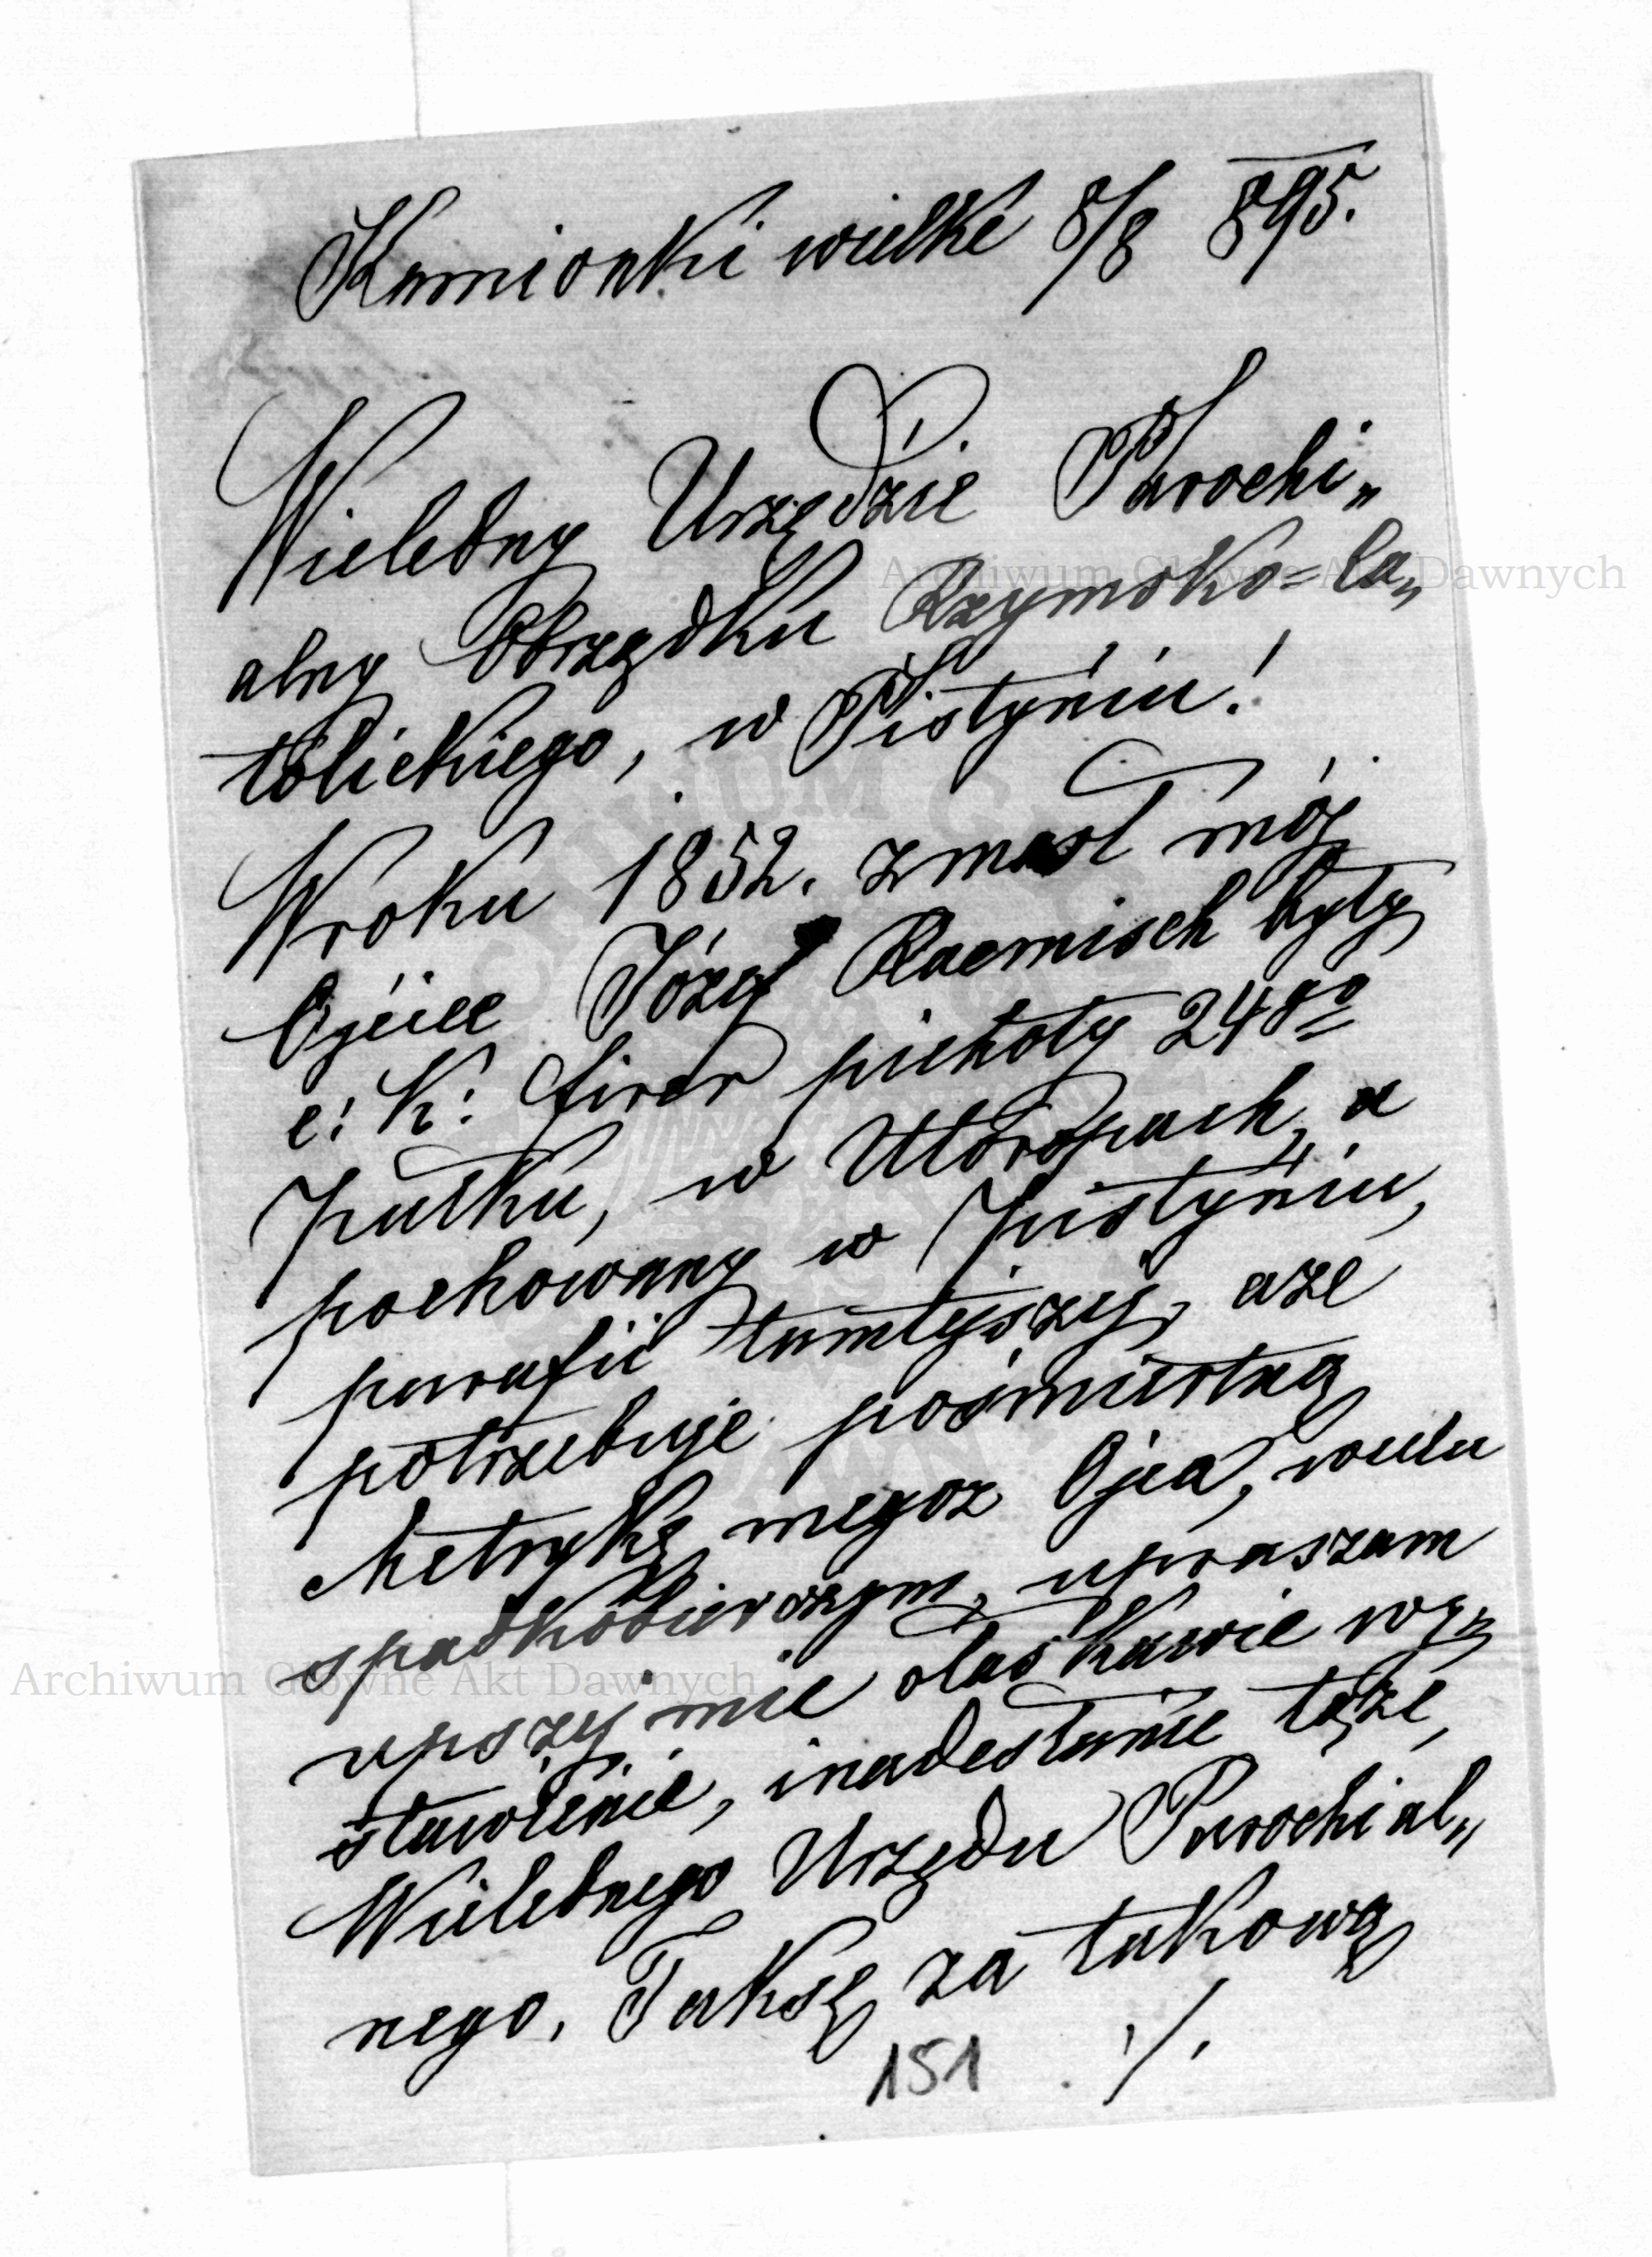 Kamionki wielké 8/8 895.
Wielebny Urzędzie Parochi„
alny Obrządku Rzymsko=Ca„
tolickiego, w Pistyniu!
W roku 1852. zmarł mój
Ojciec Józef Raemisch były
c: K: firer piechoty 24go
pułku, w Utoropach, a
pochowany w Pistyniu,
parafii tamtejszej, aże
potrzebuję pośmiertną
Metrykę megoż Ojca, w celu
spadkobierczym, upraszam
upszejmie ołaskawie wy„
stawienie, i nadesłanie tęże,
Wielebnego Urzędu Parochial„
nego. Taksę za takową
151 ./.
Archiwum Główne Akt Dawnych
Archiwum Główne Akt Dawnych